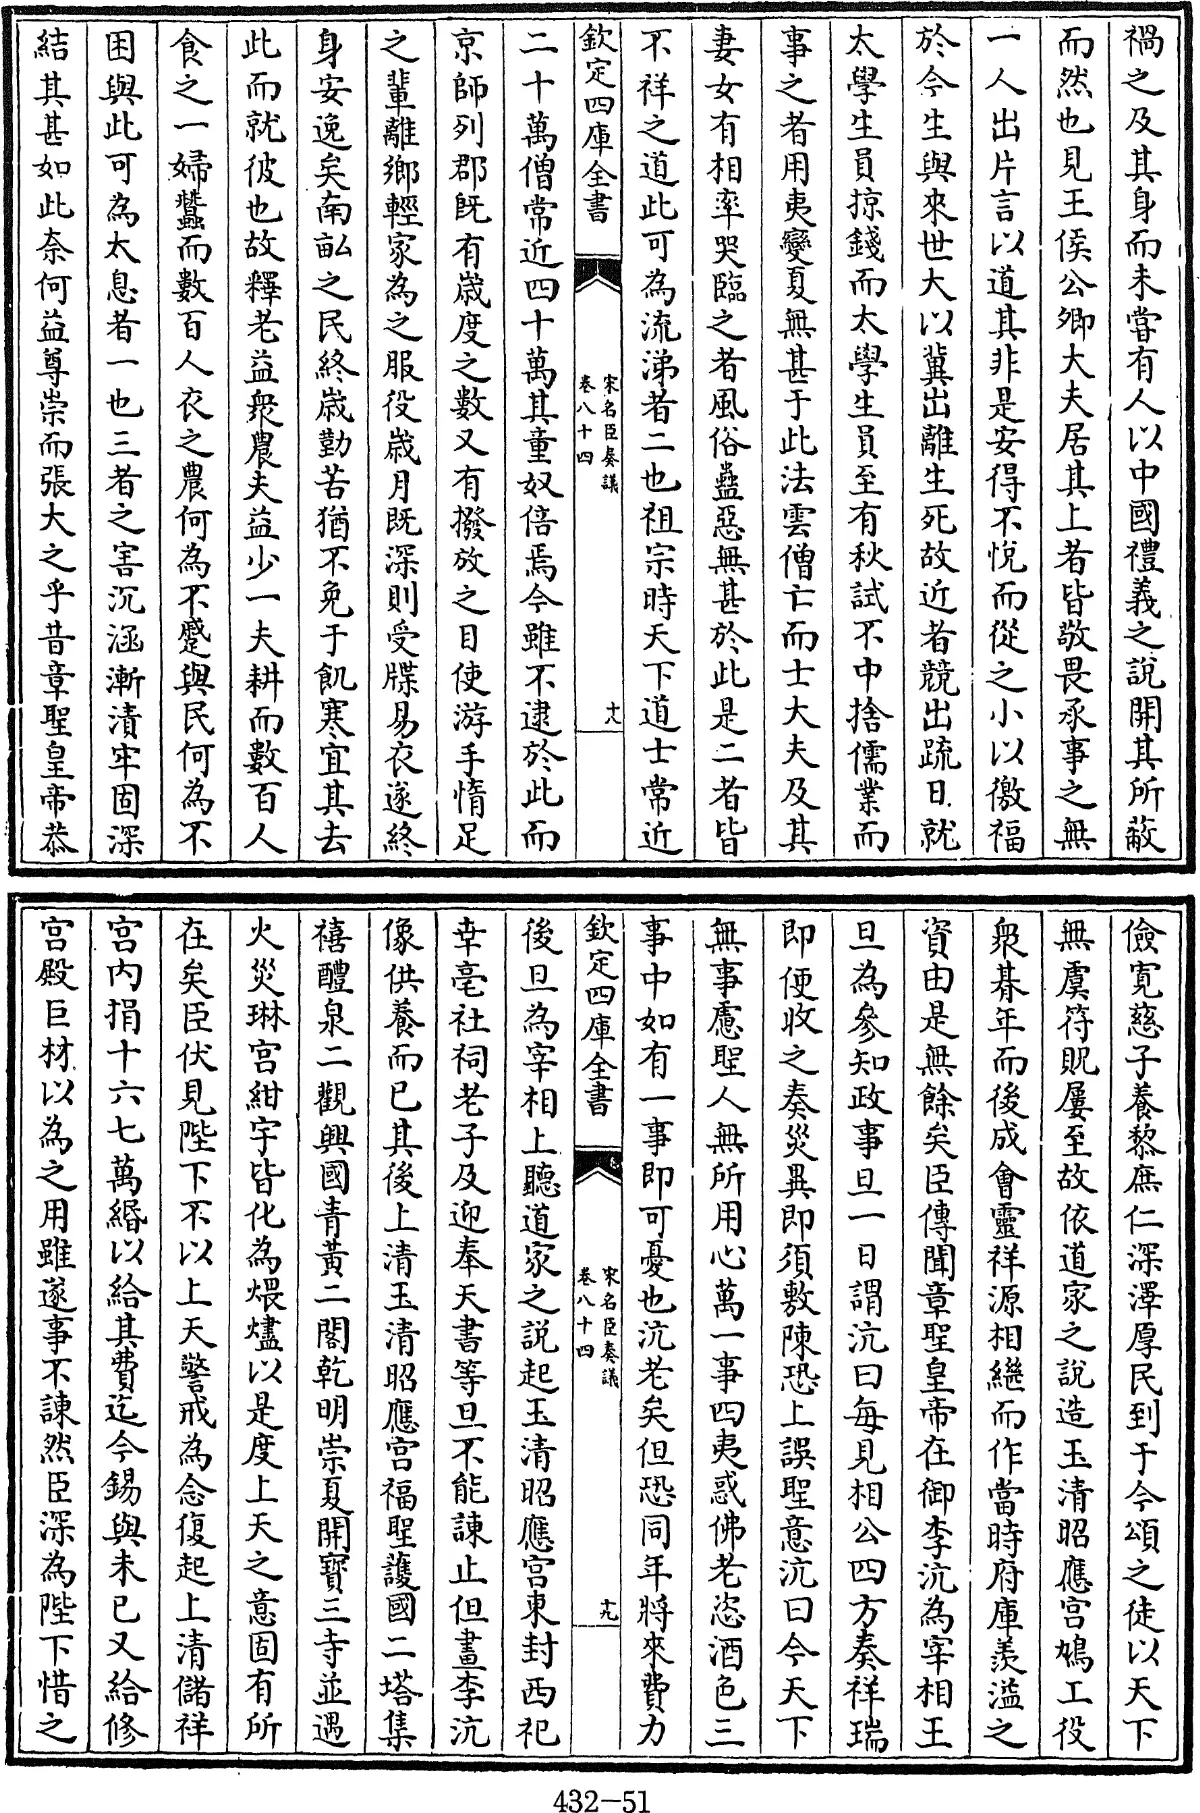 禍之及其身而未嘗有人以中國禮義之說開其所蔽
而然也見王侯公卿大夫居其上者皆敬畏承事之無
一人出片言以道其非是安得不悅而從之小以徼福
於今生與來世大以冀出離生死故近者競出疏日就
太學生員掠錢而太學生員至有秋試不中捨儒業而
事之者用夷變夏無甚于此法雲僧亡而士大夫及其
妻女有相率哭臨之者風俗蠱惡無甚於此是二者皆
不祥之道此可為流涕者二也祖宗時天下道士常近
欽定四庫全書
宋名臣奏議
卷八十四
十八
二十萬僧常近四十萬其童奴倍焉今雖不逮於此而
京師列郡既有歲度之數又有撥放之目使游手惰足
之輩離鄉輕家為之服役歲月既深則受牒易衣遂終
身安逸矣南畝之民終歲勤苦猶不免于飢寒宜其去
此而就彼也故釋老益衆農夫益少一夫耕而數百人
食之一婦蠶而數百人衣之農何為不蹙與民何為不
困與此可為太息者一也三者之害沉涵漸漬牢固深
結其甚如此奈何益尊崇而張大之乎昔章聖皇帝恭
儉寬慈子養黎庶仁深澤厚民到于今頌之徒以天下
無虞符貺屢至故依道家之說造玉清昭應宮鳩工役
衆朞年而後成會靈祥源相繼而作當時府庫羨溢之
資由是無餘矣臣傳聞章聖皇帝在御李沆為宰相王
旦為參知政事旦一日謂沆曰每見相公四方奏祥瑞
即便收之奏災異即須敷陳恐上誤聖意沆曰今天下
無事慮聖人無所用心萬一事四夷惑佛老恣酒色三
事中如有一事即可憂也沆老矣但恐同年將來費力
欽定四庫全書
宋名臣奏議
卷八十四
十九
後旦為宰相上聽道家之說起玉清昭應宮東封西祀
幸亳社祠老子及迎奉天書等旦不能諫止但畫李沆
像供養而已其後上清玉清昭應宮福聖護國二塔集
禧醴泉二觀興國青黃二閣乾明崇夏開寶三寺並遇
火災琳宮紺宇皆化為煨燼以是度上天之意固有所
在矣臣伏見陛下不以上天警戒為念復起上清儲祥
宮內捐十六七萬緡以給其費迄今錫與未已又給修
宮殿巨材以為之用雖遂事不諫然臣深為陛下惜之
432-51